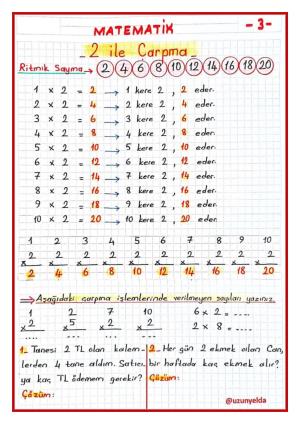 MATEMATİK
- 3 -
2 ile Çarpma
Ritmik Sayma → 2 4 6 8 10 12 14 16 18 20
1 x 2 = 2 → 1 kere 2, 2 eder.
2 x 2 = 4 → 2 kere 2, 4 eder.
3 x 2 = 6 → 3 kere 2, 6 eder.
4 x 2 = 8 → 4 kere 2, 8 eder.
5 x 2 = 10 → 5 kere 2, 10 eder.
6 x 2 = 12 → 6 kere 2, 12 eder.
7 x 2 = 14 → 7 kere 2, 14 eder.
8 x 2 = 16 → 8 kere 2, 16 eder.
9 x 2 = 18 → 9 kere 2, 18 eder.
10 x 2 = 20 → 10 kere 2, 20 eder.
1 2 3 4 5 6 7 8 9 10
x 2 x 2 x 2 x 2 x 2 x 2 x 2 x 2 x 2 x 2
2 4 6 8 10 12 14 16 18 20
→ Aşağıdaki çarpma işlemlerinde verilmeyen sayıları yazınız.
1 2 7 10 6 x 2 = ....
x 2 x 5 x 2 x 2 2 x 8 = ....
.... .... .... ....
1_ Tanesi 2 TL olan kalem-
lerden 4 tane aldım. Satıcı-
ya kaç TL ödemem gerekir?
Çözüm:
2_ Her gün 2 ekmek alan Can,
bir haftada kaç ekmek alır?
Çözüm:
@uzunyelda